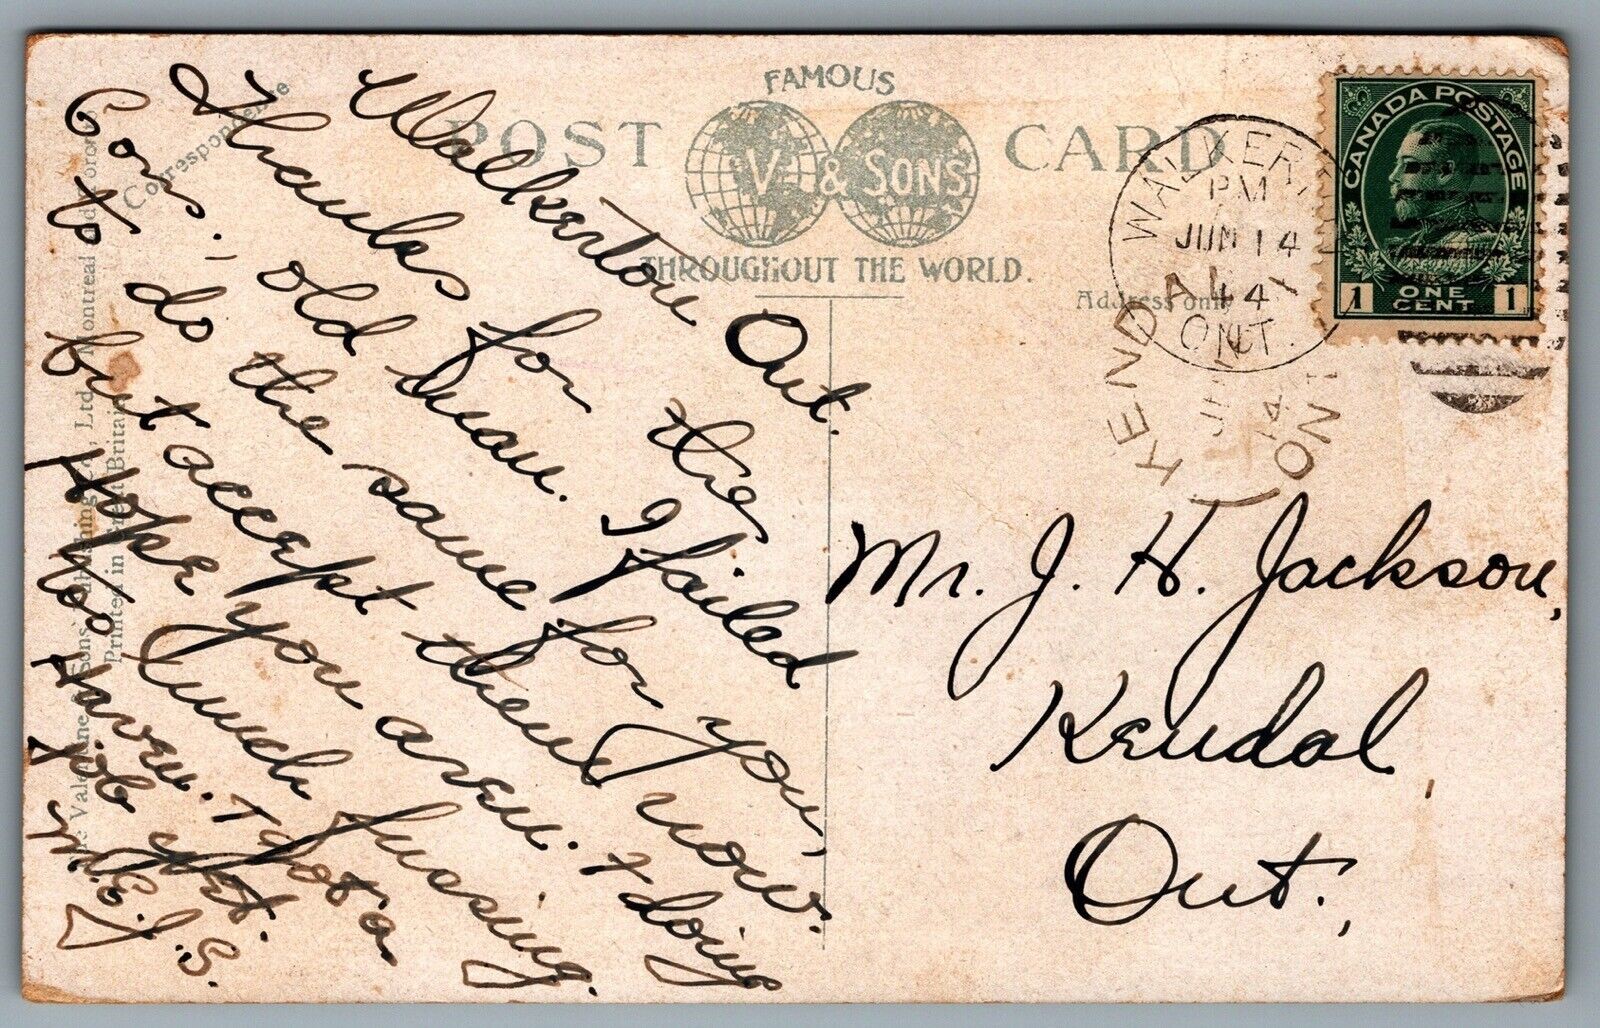 FAMOUS
POST CARD
V & SONS
THROUGHOUT THE WORLD.
Correspondence
Address only
The Valentine & Sons' Publishing Co., Ltd., Montreal and Toronto
Printed in Great Britain
CANADA POSTAGE
1 ONE CENT 1
WALKERTON
PM
JUN 14
14
ONT.
KENDAL
JU
14
ONT
Walkerton Ont.
Thanks for the
Con; old man. I failed
to do the same for you,
but accept them now.
Hope you are doing
too much fussing.
Have not a
job yet.
J.S.
Mr. J. H. Jackson,
Kendal
Ont.,